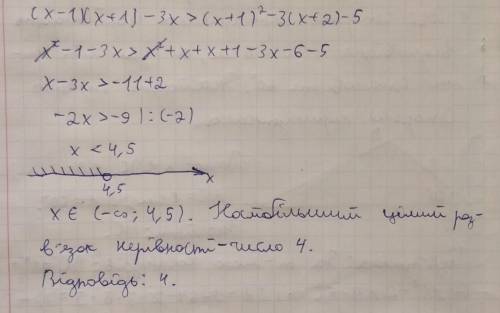 (x-1)(x+1)-3x>(x+1)²-3(x+2)-5
x²-1-3x>x²+x+x+1-3x-6-5
x-3x>-11+2
-2x>-9|:(-2)
x<4,5
4,5 x
x∈(-∞; 4,5). Найбільший цілий роз-
в'язок нерівності-число 4.
Відповідь: 4.